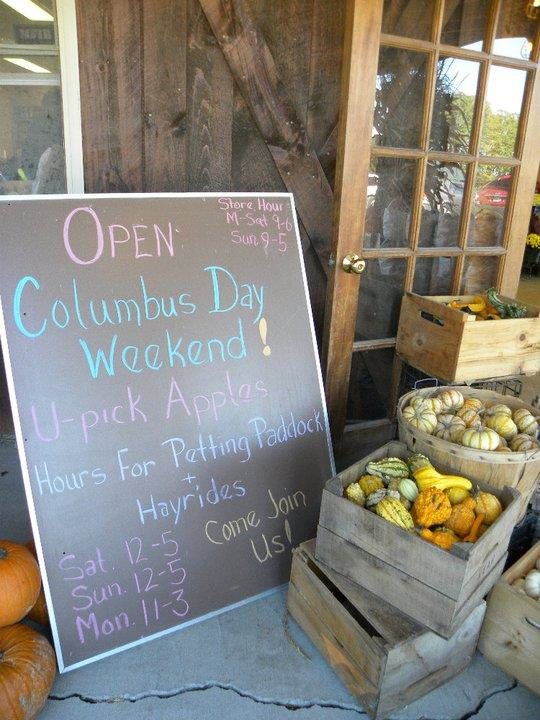 OPEN
Store Hour
M-Sat 9-6
Sun 9-5
Columbus Day
Weekend!
U-pick Apples
Hours For Petting Paddock
+
Hayrides
Come Join
Us!
Sat. 12-5
Sun. 12-5
Mon. 11-3